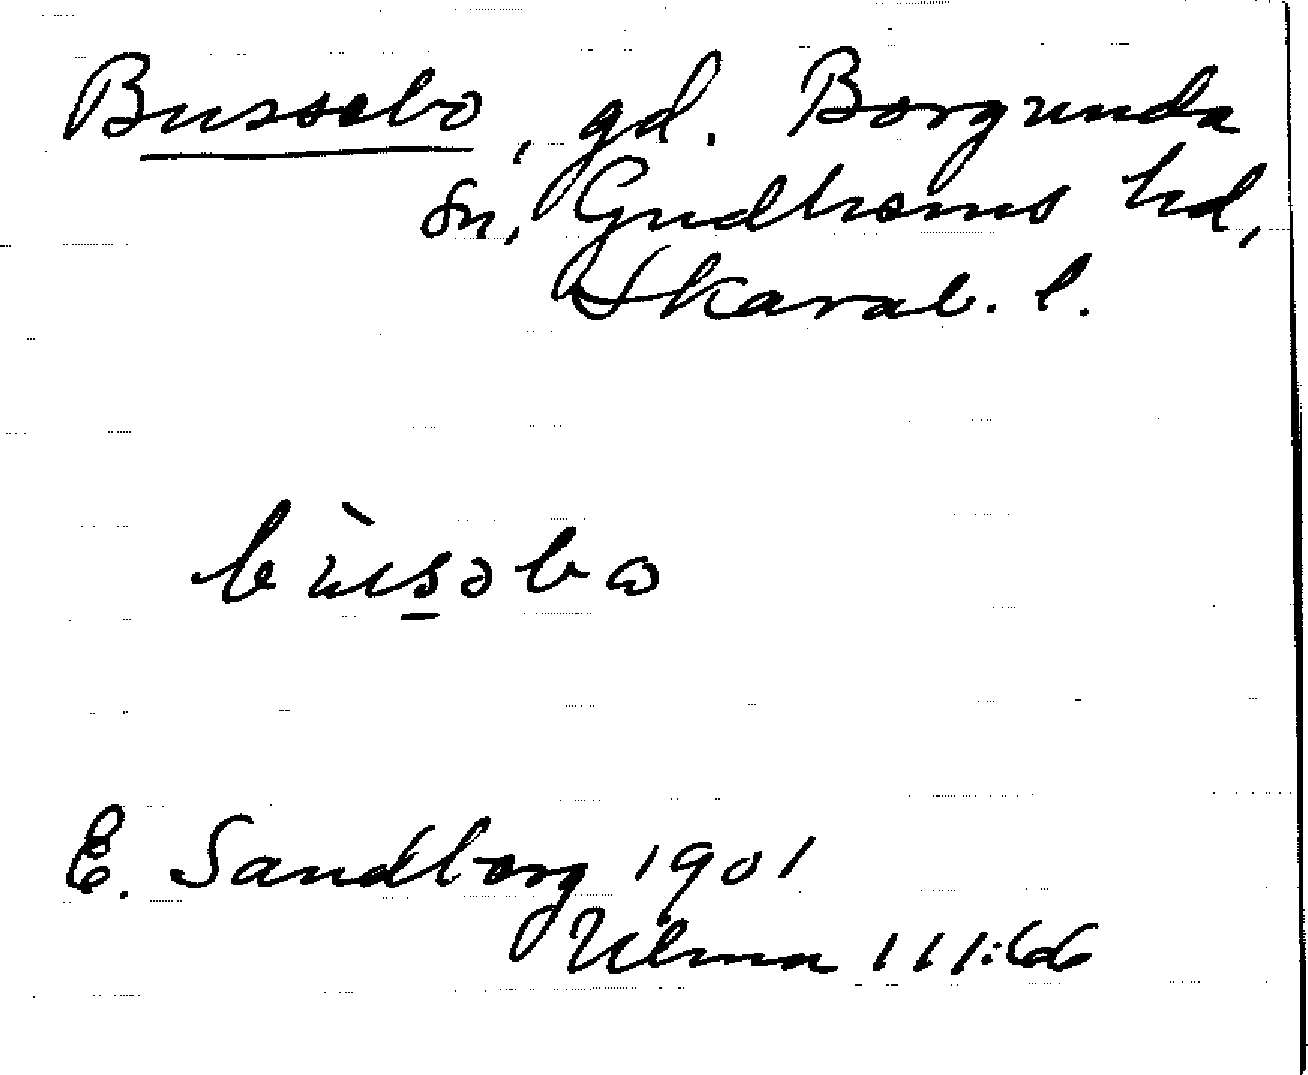 Bussebo, gd. Borgunda
sn, Gudhems hd,
Skarab. l.
bùsəbo
E. Sandberg 1901
Ulma 111:66